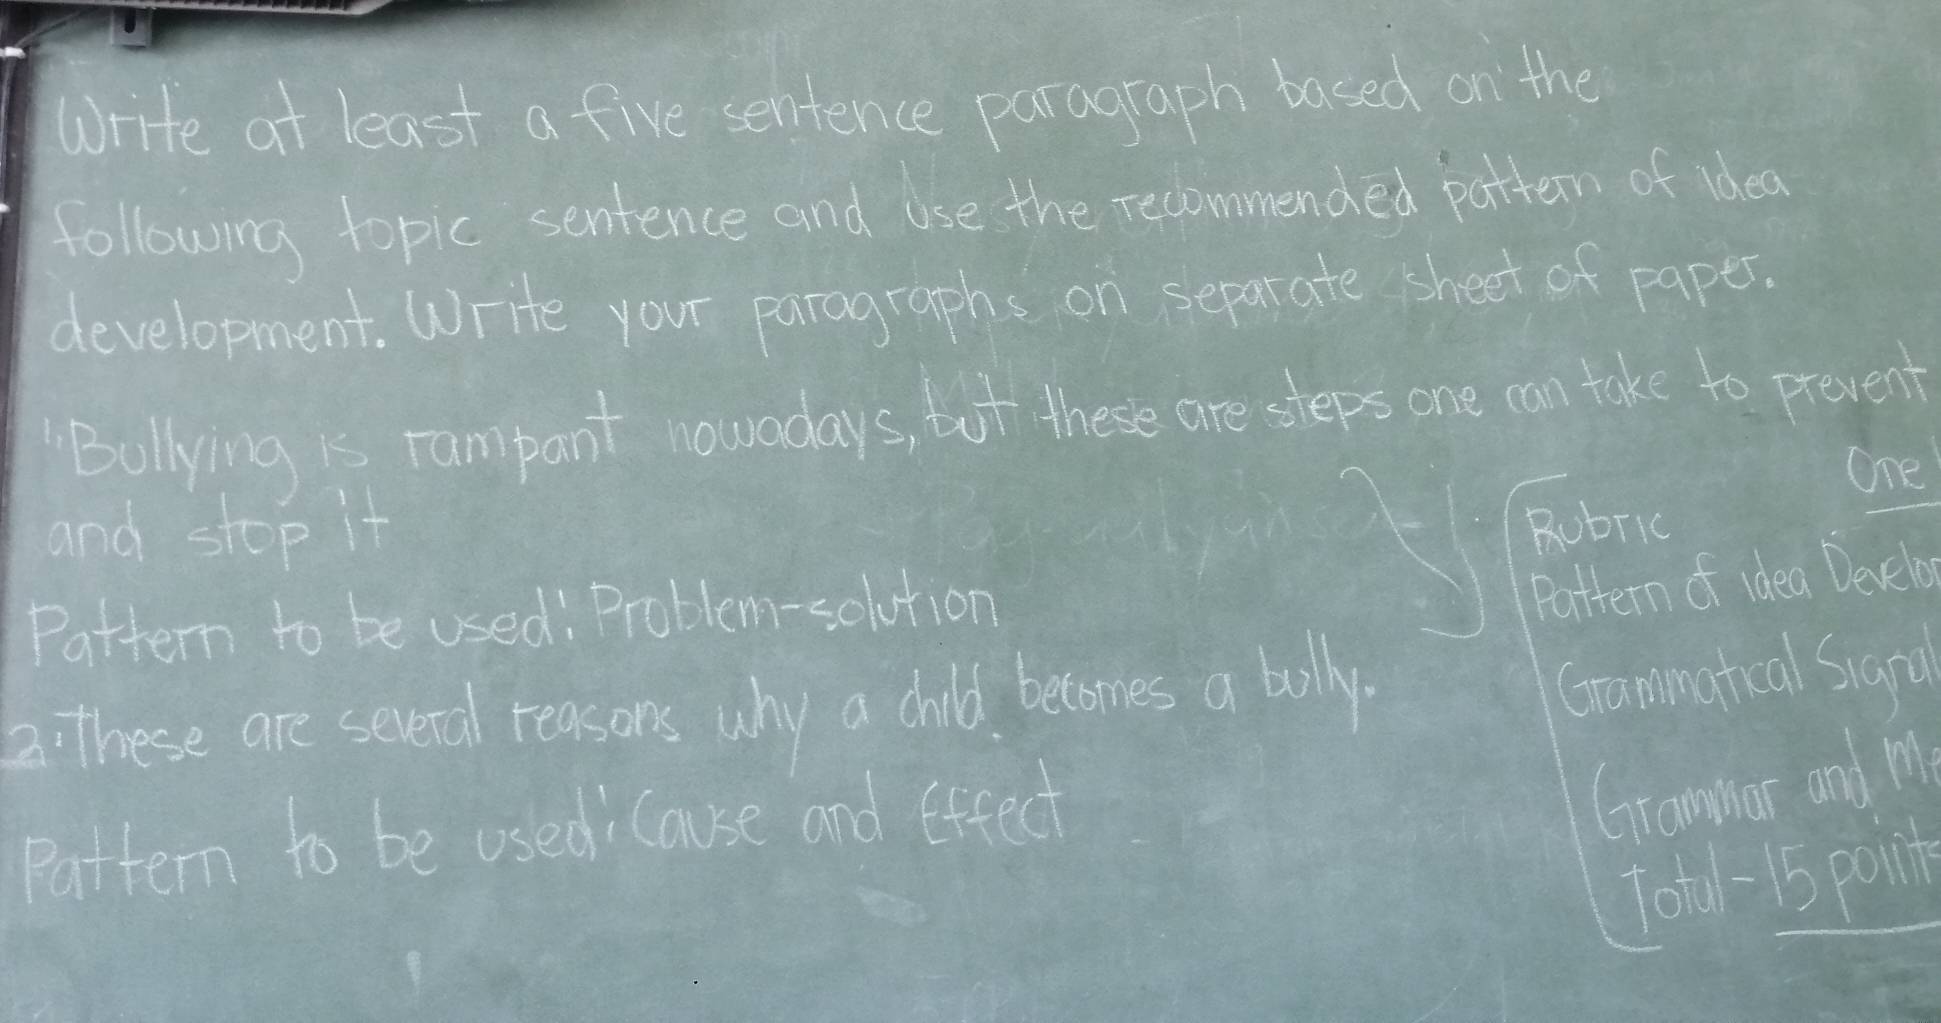 Write at least a five sentence paragraph based on the
following topic sentence and use the recommended pattern of idea
development. Write your paragraphs on separate sheet of paper.
1. "Bullying is rampant nowadays, but these are steps one can take to prevent
and stop it
Pattern to be used: Problem-solution
2. These are several reasons why a child becomes a bully.
Pattern to be used: Cause and Effect
One
Rubric
Pattern of idea Develop
Grammatical Signal
Grammar and Me
Total - 15 points